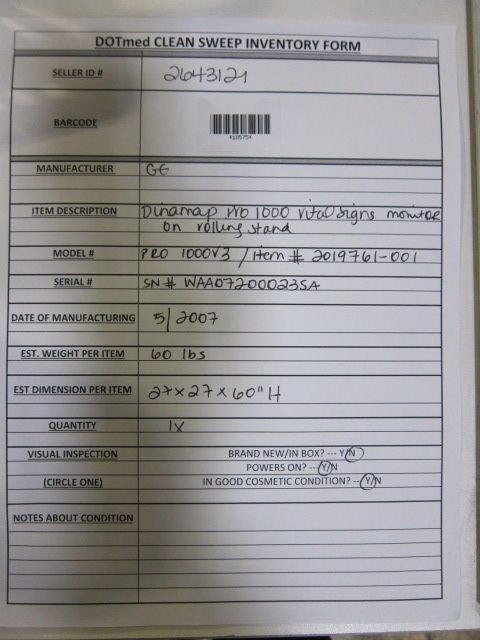 DOTmed CLEAN SWEEP INVENTORY FORM
SELLER ID # 2643121
BARCODE
*18575*
MANUFACTURER GE
ITEM DESCRIPTION Dinamap Pro 1000 vital signs monitor
on rolling stand
MODEL # PRO 1000V3 / Item # 2019761-001
SERIAL # SN# WAA07200023SA
DATE OF MANUFACTURING 5/2007
EST. WEIGHT PER ITEM 60 lbs
EST DIMENSION PER ITEM 27 x 27 x 60" H
QUANTITY 1x
VISUAL INSPECTION BRAND NEW/IN BOX? --- Y/N
POWERS ON? --- Y/N
(CIRCLE ONE) IN GOOD COSMETIC CONDITION? --- Y/N
NOTES ABOUT CONDITION